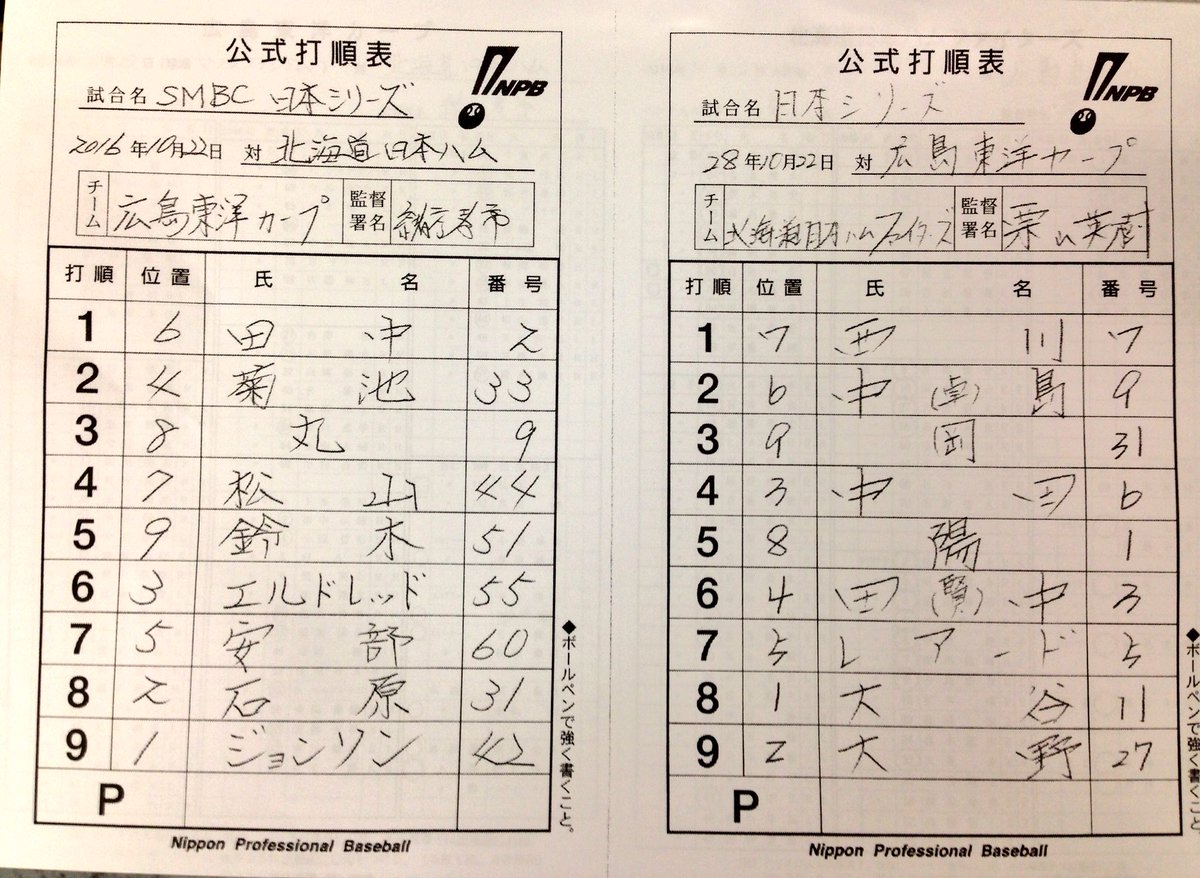 公式打順表
NPB
試合名 SMBC 日本シリーズ
2016年10月22日 対 北海道日本ハム
チーム 広島東洋カープ 監督署名 緒方孝市
打順 位置 氏名 番号
1 6 田中 2
2 4 菊池 33
3 8 丸 9
4 7 松山 44
5 9 鈴木 51
6 3 エルドレッド 55
7 5 安部 60
8 2 石原 31
9 1 ジョンソン 42
P
◆ボールペンで強く書くこと。
Nippon Professional Baseball
公式打順表
NPB
試合名 日本シリーズ
28年10月22日 対 広島東洋カープ
チーム 北海道日本ハムファイターズ 監督署名 栗山英樹
打順 位置 氏名 番号
1 7 西川 7
2 6 中(卓)島 9
3 9 岡 31
4 3 中田 6
5 8 陽 1
6 4 田(賢)中 3
7 5 レアード 5
8 1 大谷 11
9 2 大野 27
P
◆ボールペンで強く書くこと
Nippon Professional Baseball